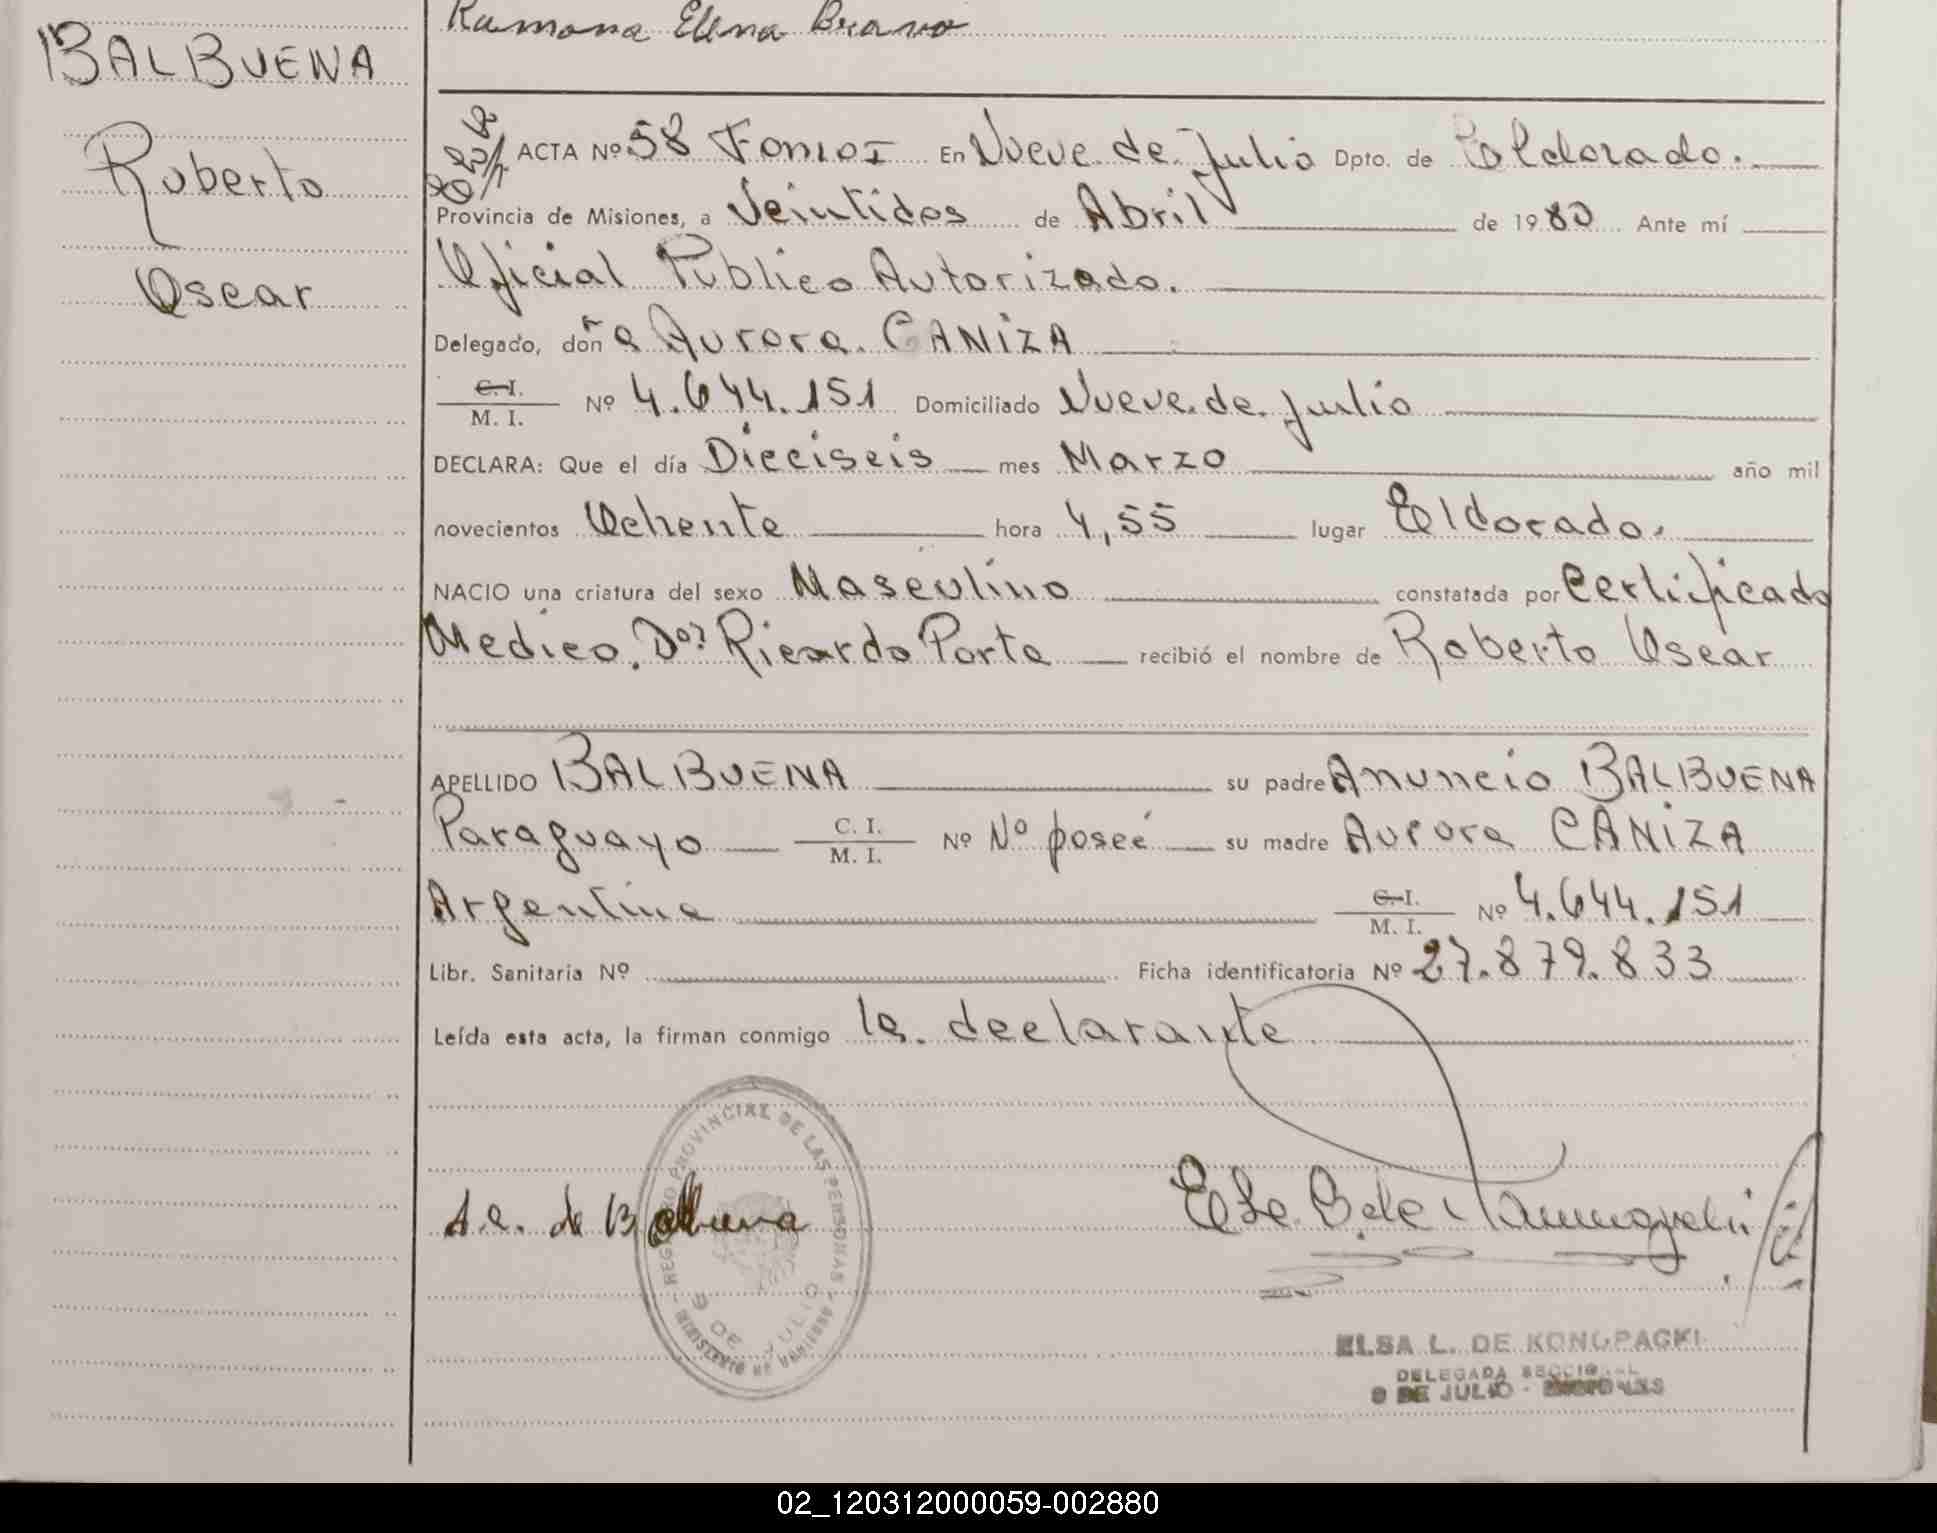 Ramona Elena Bravo
BALBUENA
Roberto
Oscar
ACTA Nº 58 Tomo I En Nueve de Julio Dpto. de Eldorado.
Provincia de Misiones, a Veintidos de Abril de 1980 Ante mí
Oficial Publico Autorizado.
Delegado, doña Aurora CANIZA
C. I. / M. I. Nº 4.644.151 Domiciliado Nueve de Julio
DECLARA: Que el día Dieciseis mes Marzo año mil
novecientos Ochenta hora 4,55 lugar Eldorado.
NACIO una criatura del sexo Masculino constatada por Certificado
Medico. Dor Ricardo Porta recibió el nombre de Roberto Oscar
APELLIDO BALBUENA su padre Anuncio BALBUENA
Paraguayo C. I. / M. I. Nº No poseé su madre Aurora CANIZA
Argentina C. I. / M. I. Nº 4.644.151
Libr. Sanitaria Nº Ficha identificatoria Nº 27.879.833
Leída esta acta, la firman conmigo la declarante
REGISTRO PROVINCIAL DE LAS PERSONAS
MINISTERIO DE GOBIERNO
9 DE JULIO
A.C. de Balbuena
ELSA L. DE KONOPACKI
DELEGADA SECCIONAL
9 DE JULIO - MISIONES
02_120312000059-002880